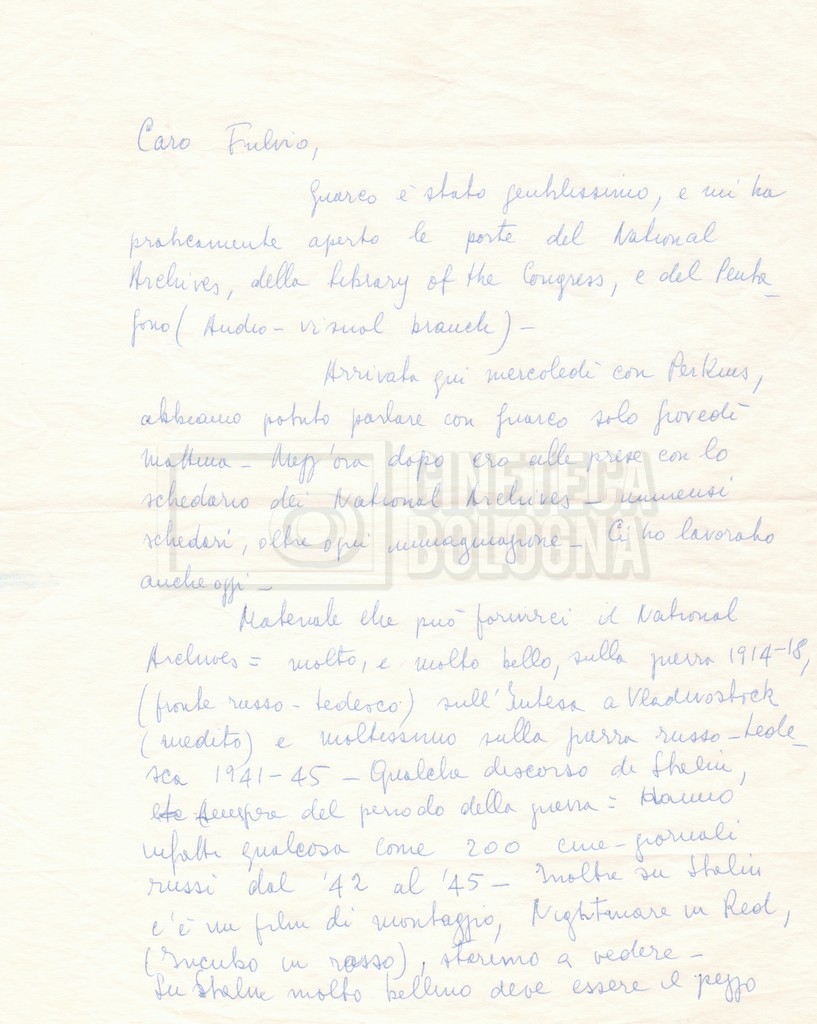 Caro Fulvio,
Guarco è stato gentilissimo, e mi ha
praticamente aperto le porte del National
Archives, della Library of the Congress, e del Penta-
gono (Audio-visual branch) -
Arrivata qui mercoledì con Perkins,
abbiamo potuto parlare con Guarco solo giovedì
mattina - Mezz'ora dopo ero alle prese con lo
schedario dei National Archives - immensi
schedari, oltre ogni immaginazione - Ci ho lavorato
anche oggi -
CINETECA
BOLOGNA
Materiale che può fornirci il National
Archives = molto, e molto bello, sulla guerra 1914-18,
(fronte russo-tedesco) sull'Intesa a Vladivostock
(inedito) e moltissimo sulla guerra russo-tede-
sca 1941-45 - Qualche discorso di Stalin,
sempre del periodo della guerra = Hanno
infatti qualcosa come 200 cine-giornali
russi dal '42 al '45 - Inoltre su Stalin
c'è un film di montaggio, Nightmare in Red,
(Incubo in rosso), staremo a vedere -
Su Stalin molto bellino deve essere il pezzo